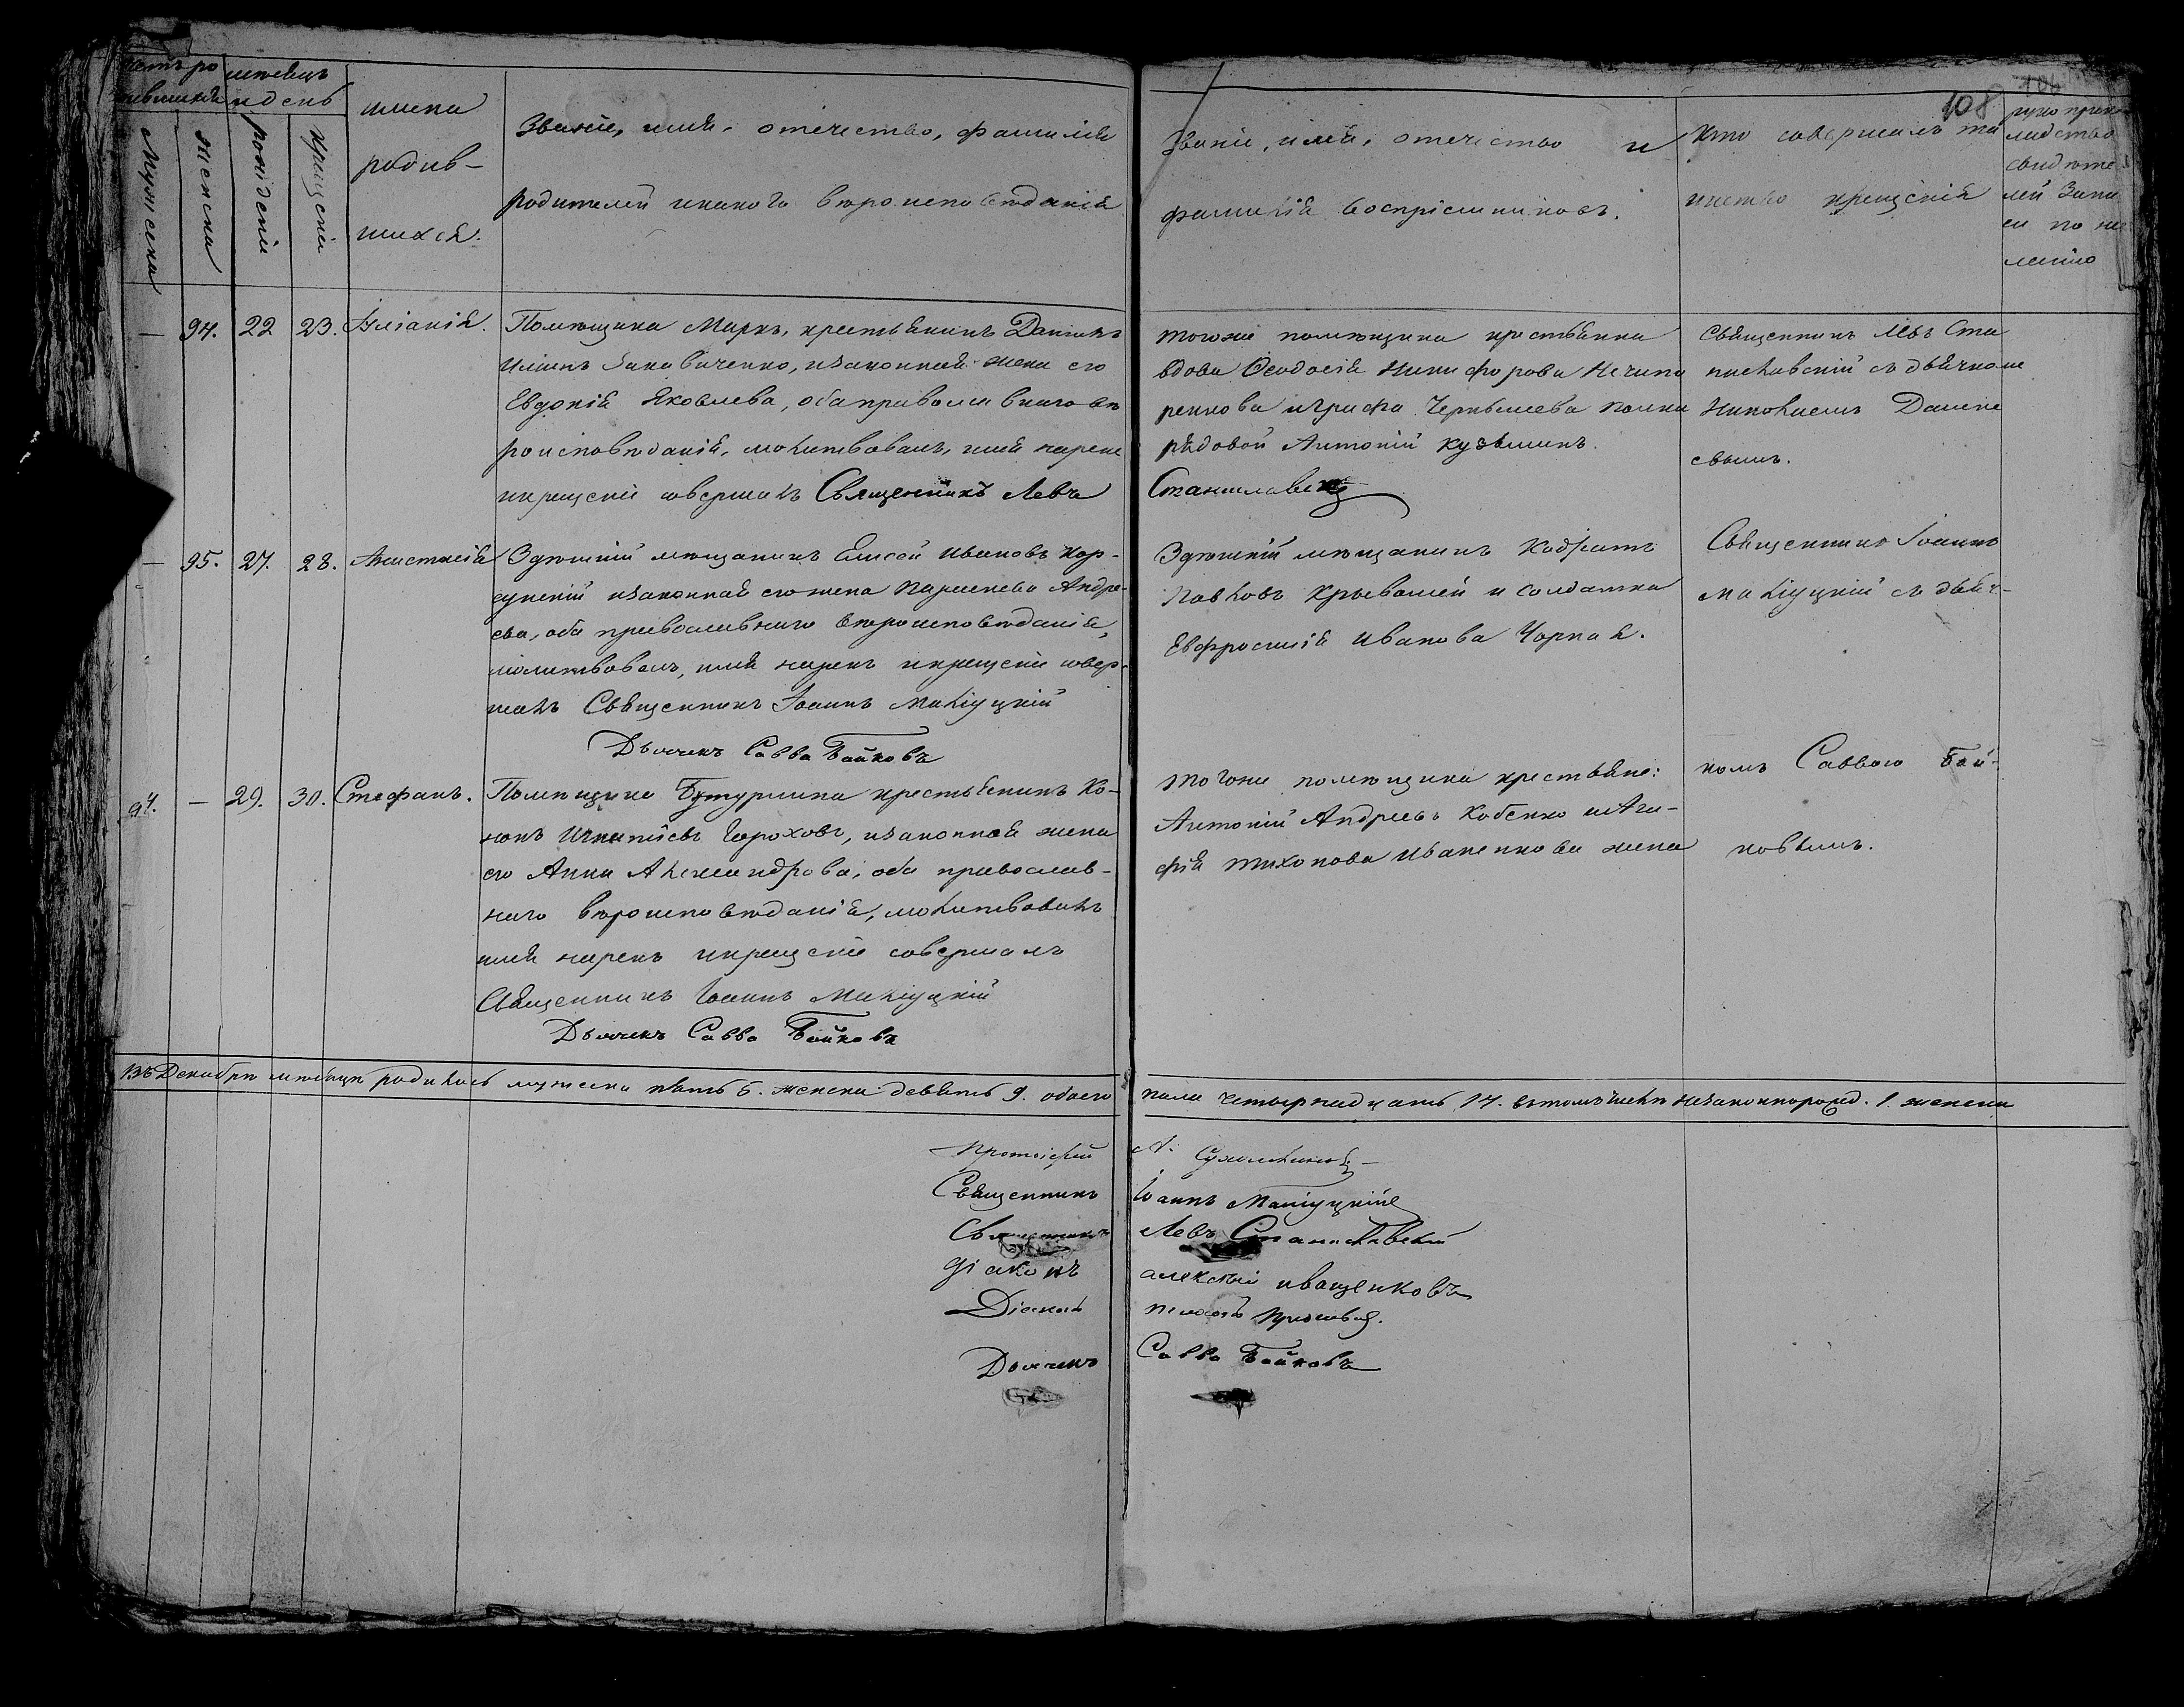 108
мѣсяцъ
и день
Мужеска
Женска
рожденіе
крещеніе
имена
родив-
шихся.
Званіе, имя, отечество, фамилія
родителей и какого вѣроисповѣданія
Званіе, имя, отечество и
фамилія воспріемниковъ.
Кто совершалъ та
инство крещенія
свидѣте
лей запи
си по же
ланію
— 94. 22 23. Іуліанія.
Помѣщика Марка, крестьянинъ Даніилъ
его
Евдокія Яковлева, оба православнаго вѣ
роисповѣданія, молитвовалъ, имя нарече
и крещеніе совершалъ Священникъ Левъ
Станиславскій
тогоже помѣщика крестьянка
вдова Ѳеодосія Никифорова Нечипо
ренкова и графа Чернышева полка
рядовой Антоній Кузьминъ.
Священникъ Левъ Ста
ниславскій съ дьячкоме
Николаемъ
— 95. 27. 28. Анастасія
Здѣшній мѣщанинъ Елисей Ивановъ Кор-
сунскій и законная его жена Параскева Андре-
ева, оба православнаго вѣроисповѣданія,
молитвовалъ, имя нарекъ и крещеніе совер-
шалъ Священникъ Іоаннъ
Дьячекъ Савва Байковъ
Здѣшній мѣщанинъ Кодратъ
Павловъ и солдатка
Евфросинія Иванова Чорная.
Священникъ Іоаннъ
съ дьяч-
комъ Саввою Бай-
ковымъ.
94. — 29. 30. Стефанъ.
Помѣщика Бутурлина крестьянинъ Ко-
нонъ Игнатіевъ Гороховъ, и законная жена
его Анна Александрова, оба православ-
наго вѣроисповѣданія, молитвовалъ
имя нарекъ и крещеніе совершалъ
Священникъ Іоаннъ
Дьячекъ Савва Байковъ
тогоже помѣщика крестьяне:
Антоній Андреевъ Кобенко и Ага-
фія Тихонова Иваненкова жена
въ Декабрѣ мѣсяцѣ родилось мужеска пять 5. женска девять 9. обоего
пола четырнадцать 14. въ томъ числѣ незаконнорожд. 1. женска
Протоіерей
Священникъ Іоаннъ
Священникъ Левъ Станиславскій
Діаконъ Алексѣй Иващенковъ
Діаконъ
Дьячекъ Савва Байковъ